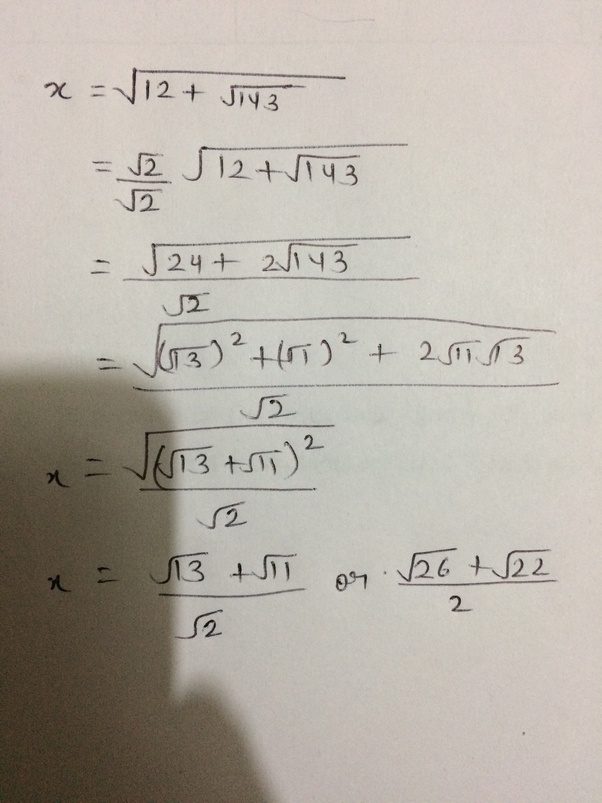 x = √(12 + √143)
= √2/√2 √(12 + √143)
= √(24 + 2√143)/√2
= √((√13)² + (√11)² + 2√11√13)/√2
x = √((√13 + √11)²)/√2
x = (√13 + √11)/√2 or (√26 + √22)/2